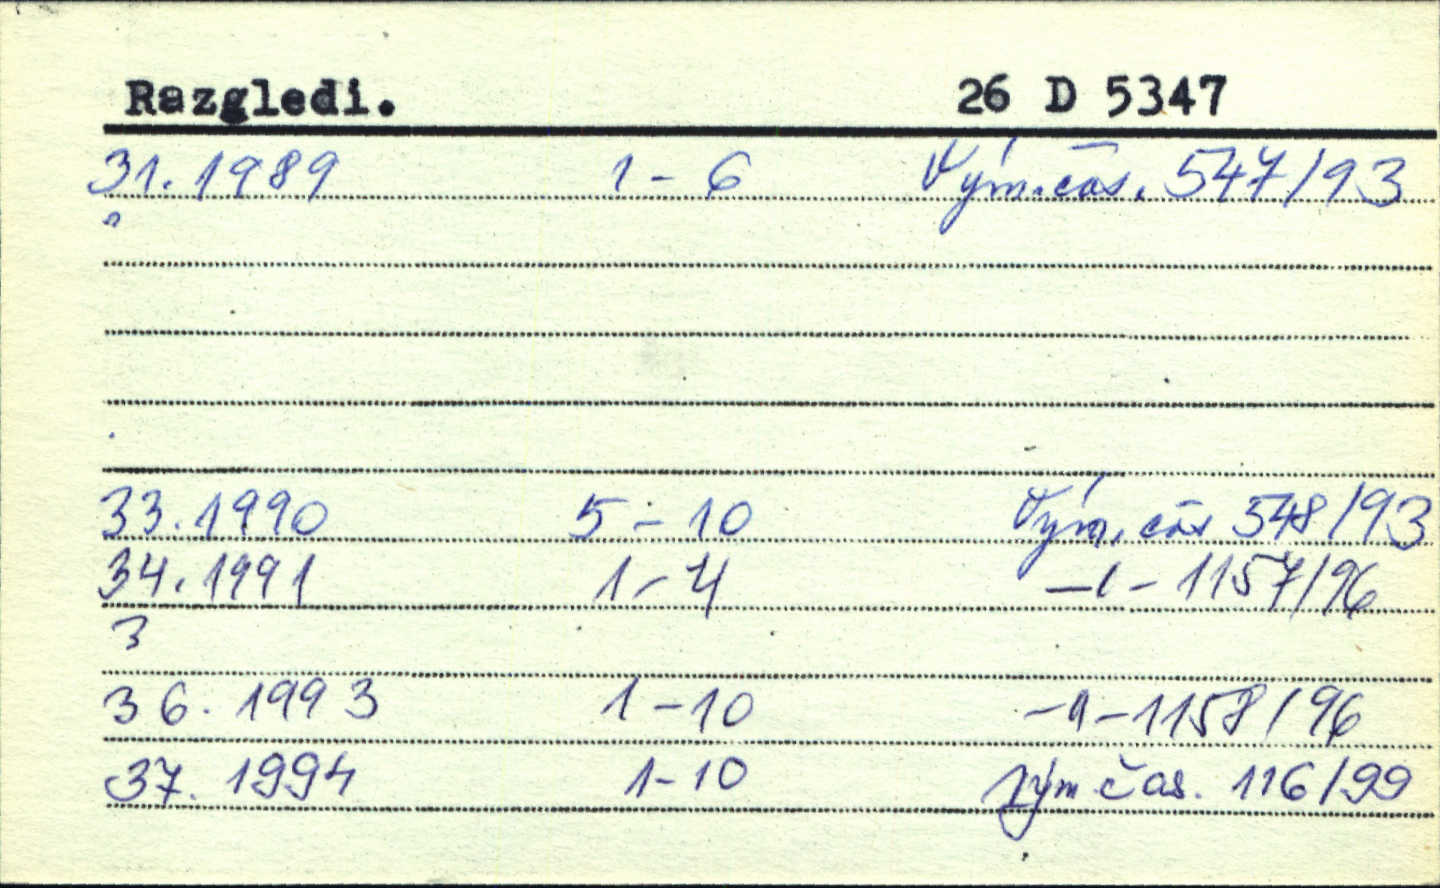 Razgledi. 26 D 5347
31. 1989 1 - 6 Vým. čas. 547/93
33. 1990 5 - 10 Vým. čas 548/93
34. 1991 1 - 4 -"- 1157/96
3
36. 1993 1 - 10 -"- 1158/96
37. 1994 1 - 10 Vým čas. 116/99